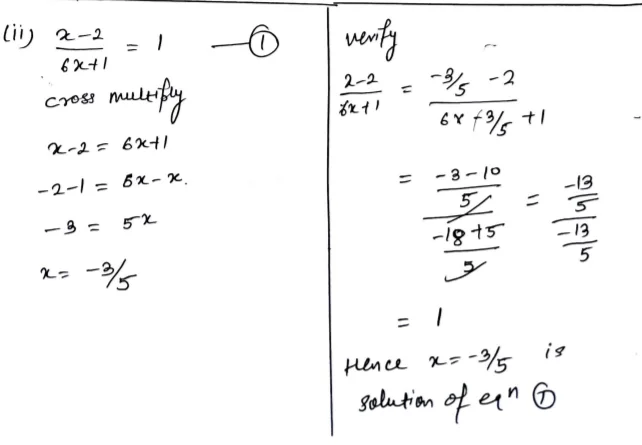 (ii) x-2/6x+1 = 1 —— ①
cross multiply
x-2 = 6x+1
-2-1 = 6x-x.
-3 = 5x
x = -3/5
verify
2-2/6x+1 = -3/5 -2/6x+3/5 +1
= -3-10/5/-18+5/5 = -13/5/-13/5
= 1
Hence x = -3/5 is
solution of eqn ①